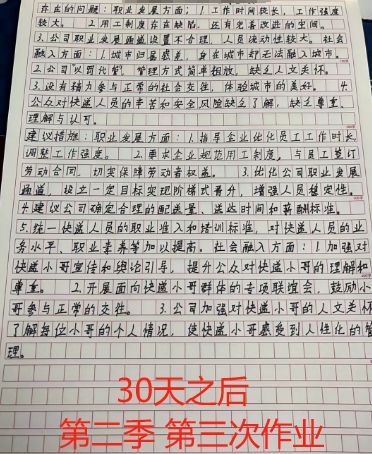 存在的问题:职业发展方面:1.工作时间长,工作强度
较大。 2.用工制度存在缺陷,还有完善改进的空间。
3.公司职业发展通道设置不合理,人员流动性较大。社会
融入方面:1.城市归属感差,身在城市却无法融入城市。
2.公司以罚代管,管理方式简单粗放,缺乏人文关怀。
3.没有精力参与正常的社会交往,体验城市的美好。 4.
公众对快递人员的辛苦和安全风险缺乏了解,缺乏尊重、
理解与认可。
建议措施:职业发展方面:1.指导企业优化员工工作时长,
调整工作强度。 2.要求企业规范用工制度,与员工签订
劳动合同,切实保障劳动者权益。 3.优化公司职业发展
通道,设立一定目标实现阶梯式晋升,增强人员稳定性。
4.建议公司确定合理的配送量、送达时间和薪酬标准。
5.统一快递人员的职业准入和培训标准,对快递人员的业
务水平、职业素养等加以提高。社会融入方面:1.加强对
快递小哥宣传和舆论引导,提升公众对快递小哥的理解和
尊重。 2.开展面向快递小哥群体的专项联谊会,鼓励小
哥参与正常的交往。 3.公司加强对快递小哥的人文关怀
了解每位小哥的个人情况,使快递小哥感受到人性化的管
理。
30天之后
第二季 第三次作业